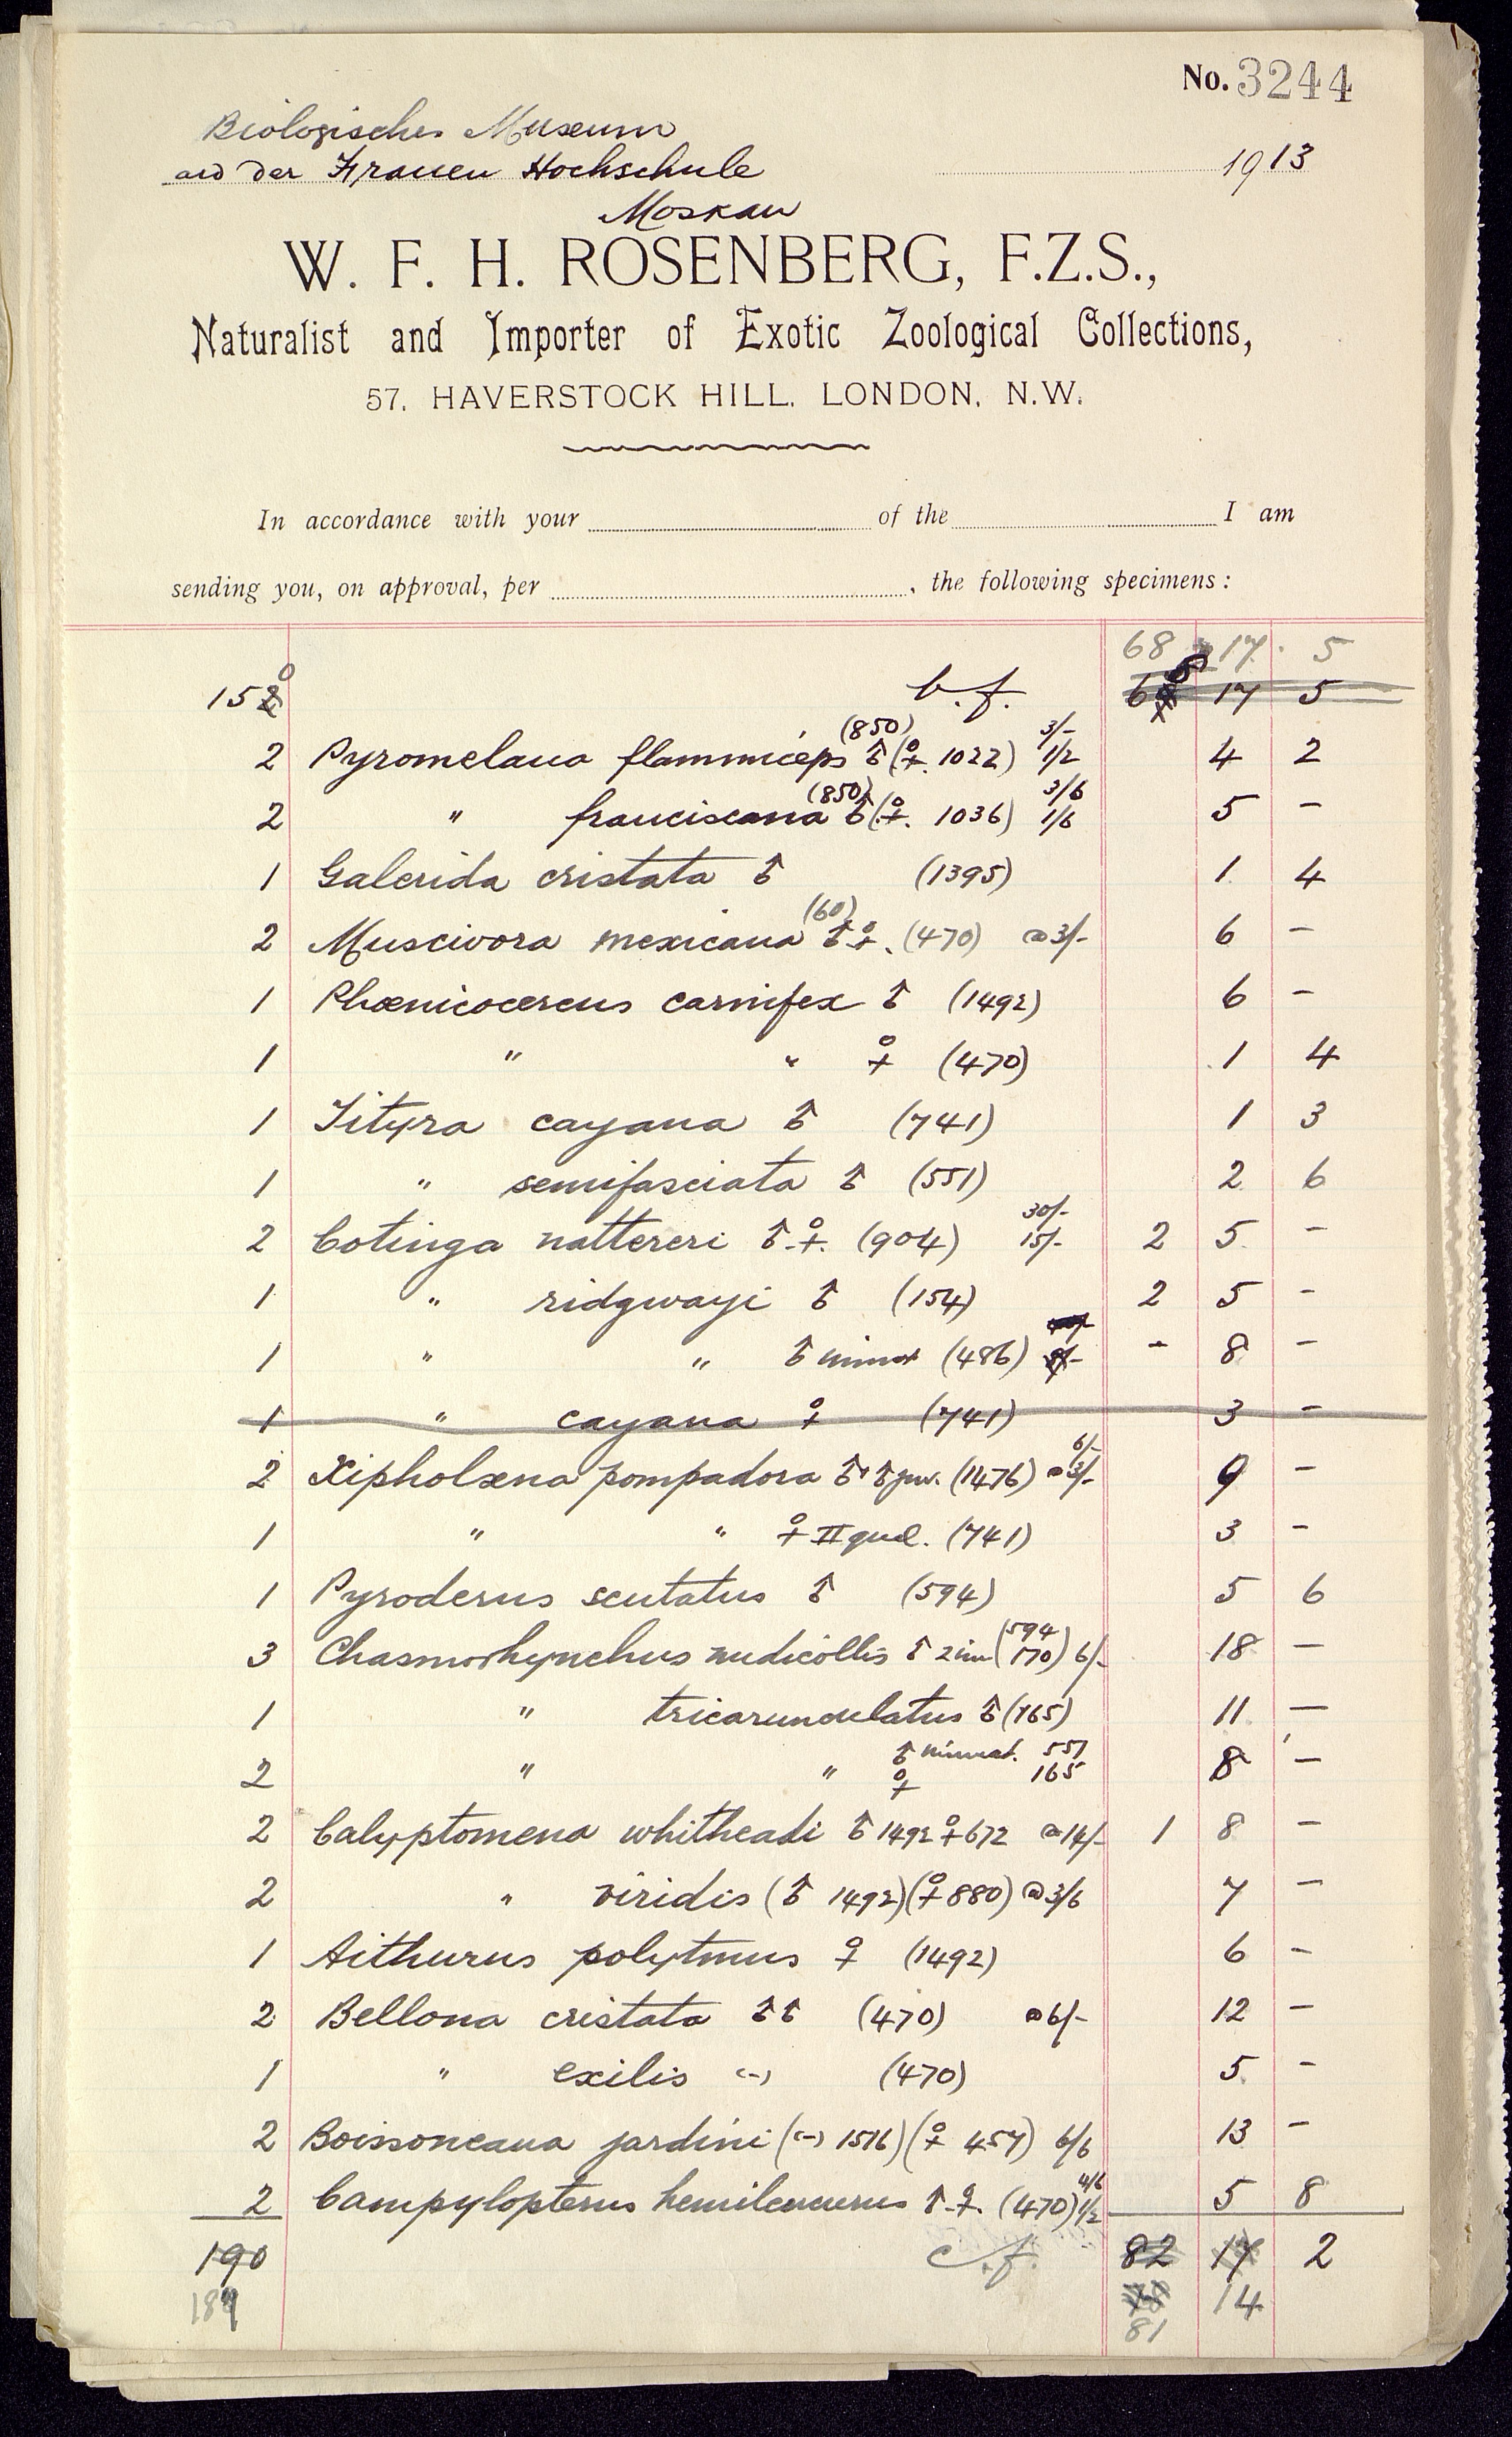 No. 3244
Biologisches Museum
an der Frauen Hochschule
1913
Moskau
W. F. H. ROSENBERG, F.Z.S.,
Naturalist and Importer of Exotic Zoological Collections,
57, HAVERSTOCK HILL, LONDON, N.W.
In accordance with your of the I am
sending you, on approval, per , the following specimens:
68 17 5
150 b.f. 17 5
2 Pyromelana flammiceps ♂ (850) (♀. 1022) 3/- 1/2 4 2
2 " franciscana ♂ (850) (♀. 1036) 3/6 1/6 5 -
1 Galerida cristata ♂ (1395) 1 4
2 Muscivora mexicana ♂ (60) ♀. (470) @ 3/- 6 -
1 Phœnicocercus carnifex ♂ (1492) 6 -
1 " " ♀ (470) 1 4
1 Tityra cayana ♂ (741) 1 3
1 " semifasciata ♂ (551) 2 6
2 Cotinga nattereri ♂.♀. (904) 30/- 15/- 2 5 -
1 " ridgwayi ♂ (154) 2 5 -
1 " " ♂ immat (486) - 8 -
1 " cayana ♀ (741) 3 -
2 Xipholæna pompadora ♂ ♂ juv. (1476) 6/- @ 3/- 9 -
1 " " ♀ II qual. (741) 3 -
1 Pyroderus scutatus ♂ (594) 5 6
3 Chasmorhynchus nudicollis ♂ 2 im (594 170) 6/- 18 -
1 " tricarunculatus ♂ (765) 11 —
2 " " ♂ immat. 551 ♀ 165 8 -
2 Calyptomena whitheadi ♂ 1492 ♀ 672 @ 14/- 1 8 -
2 " viridis (♂ 1492) (♀ 880) @ 3/6 7 -
1 Aithurus polytmus ♀ (1492) 6 -
2 Bellona cristata ♂♂ (470) @ 6/- 12 -
1 " exilis (-) (470) 5 -
2 Boissoneaua jardini ((-) 1516) (♀ 457) 6/6 13 -
2 Campylopterus hemileucurus ♂.♀. (470) 4/6 1/2 5 8
190 c.f. 82 17 2
189 14
81